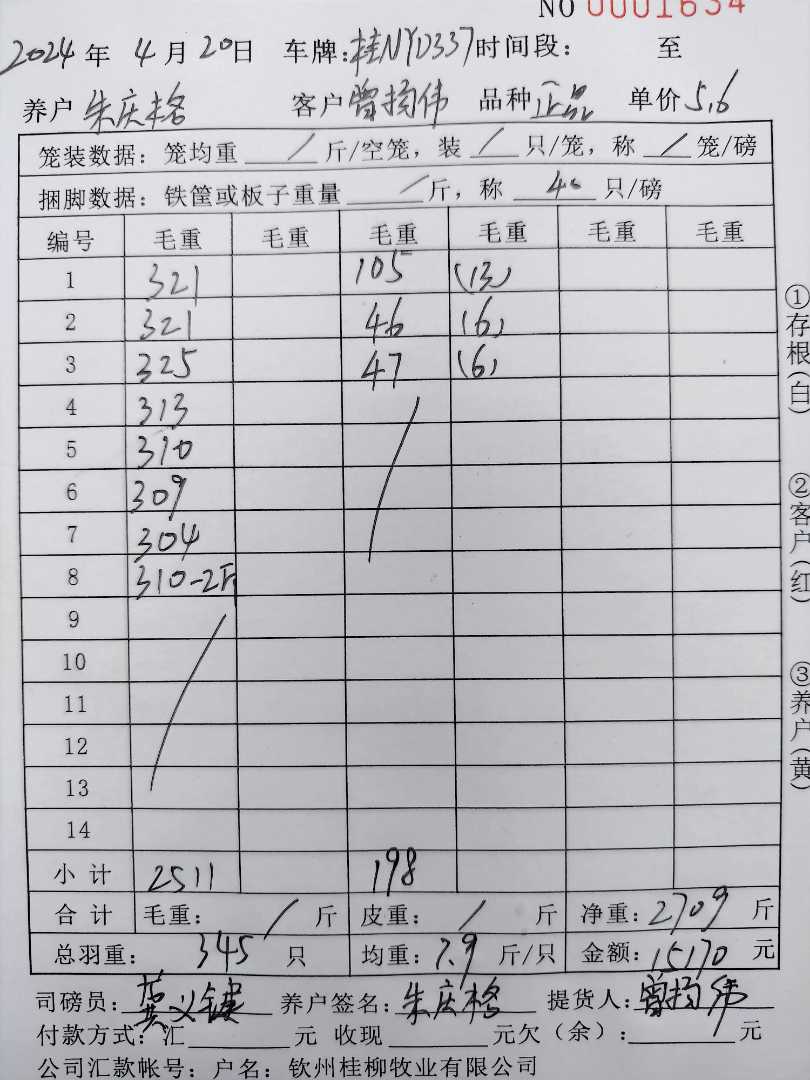 NO 0001634
2024年 4月 20日 车牌:桂NYD337 时间段: 至
养户 朱庆格 客户 曾扬伟 品种 正品 单价 5.6
笼装数据:笼均重 / 斤/空笼,装 / 只/笼,称 / 笼/磅
捆脚数据:铁筐或板子重量 / 斤,称 40 只/磅
编号 毛重 毛重 毛重 毛重 毛重 毛重
1 321 105 (13)
2 321 46 (6)
3 325 47 (6)
4 313
5 310
6 309
7 304
8 310-2只
9
10
11
12
13
14
小计 2511 198
合计 毛重: / 斤 皮重: / 斤 净重: 2709 斤
总羽重: 345 只 均重: 7.9 斤/只 金额: 15170 元
司磅员: 黄义健 养户签名: 朱庆格 提货人: 曾扬伟
付款方式:汇 元 收现 元欠(余): 元
公司汇款帐号:户名:钦州桂柳牧业有限公司
①存根(白)
②客户(红)
③养户(黄)